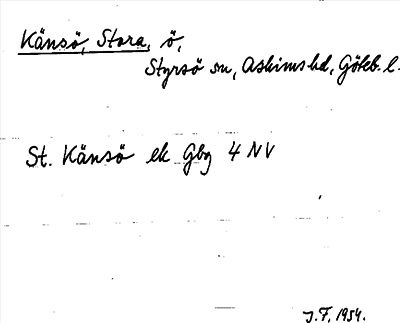 Känsö, Stora, ö,
Styrsö sn, Askims hd, Göteb. l.
St. Känsö ek Gbg 4 NV
J. F. 1954.